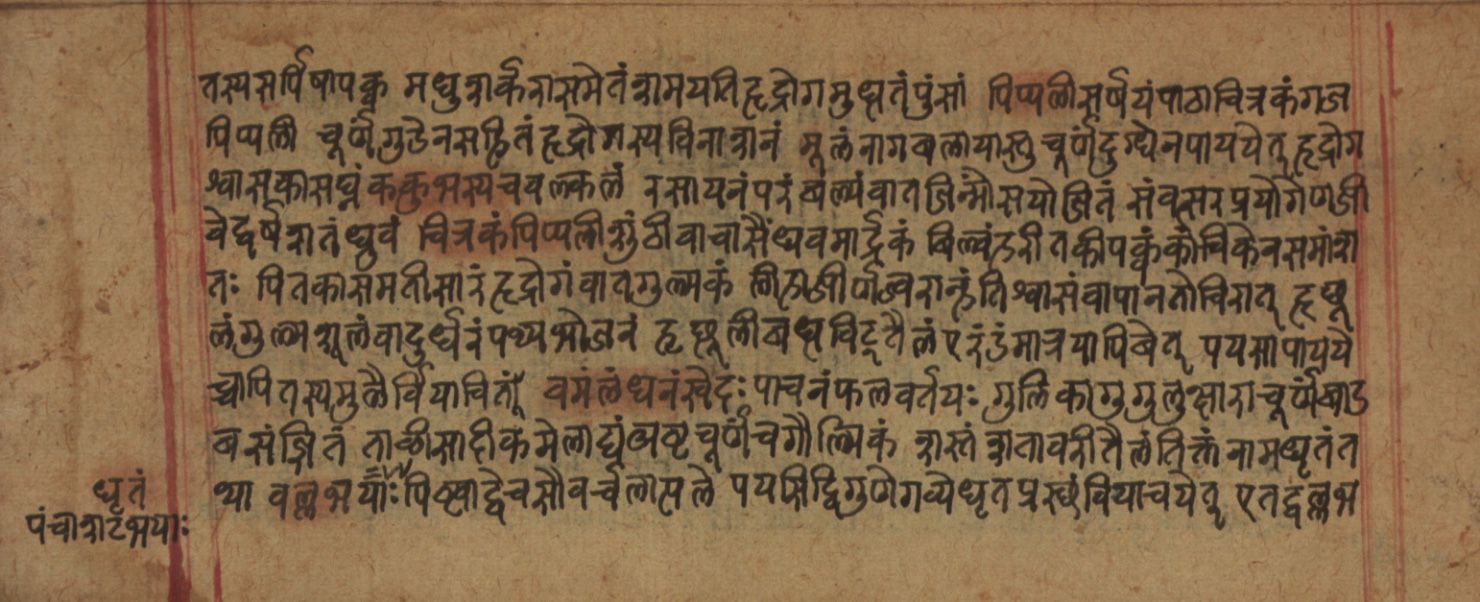 तस्य सर्पिषा पक्व मधुशर्करासमेतं शमयति हृद्रोगमुद्धतं पुंसां पिप्पली सर्षपं पाठा चित्रकं गज
पिप्पली चूर्णं गुडेन सहितं हृद्रोगस्य विनाशनं मूलं नागबलायास्तु चूर्णं दुग्धेन पाययेत् हृद्रोग
श्वासकासघ्नं ककुभस्य च वल्कलं रसायनं परं बल्यं वातजिन्मासयोजितं संवत्सरप्रयोगेण जी
वेद्वर्षशतं ध्रुवं चित्रकं पिप्पली शुंठी वाचा सैंधवमार्द्रकं बिल्वं हरीतकी पक्वं समांश
तः पितकासमतीसारं हृद्रोगं वातगुल्मकं ज्वरान्हंति श्वासं हृछू
लं गुल्मशूलं वा दुर्धरं पथ्यभोजनं तैलं एरंडं मात्रया पिबेत् पयसा पायये
वमं लंघनं स्वेदः पाचनं फलवर्तयः गुलिका गुगुलु क्षारा चूर्ण
ब संज्ञितं ताळीसादीकमेलाद्यं चूर्णं च गौल्मिकं शस्तं शतावरी तैलं तिक्तं नाम घृतं त
था वल्लभयाः पिष्ट्वा द्वे च सौवर्चलात्पले पयसि द्विगुणे गव्ये घृतप्रस्थं विपाचयेत् एतद्वल्लभ
घृतं
पंचाशदभयाः